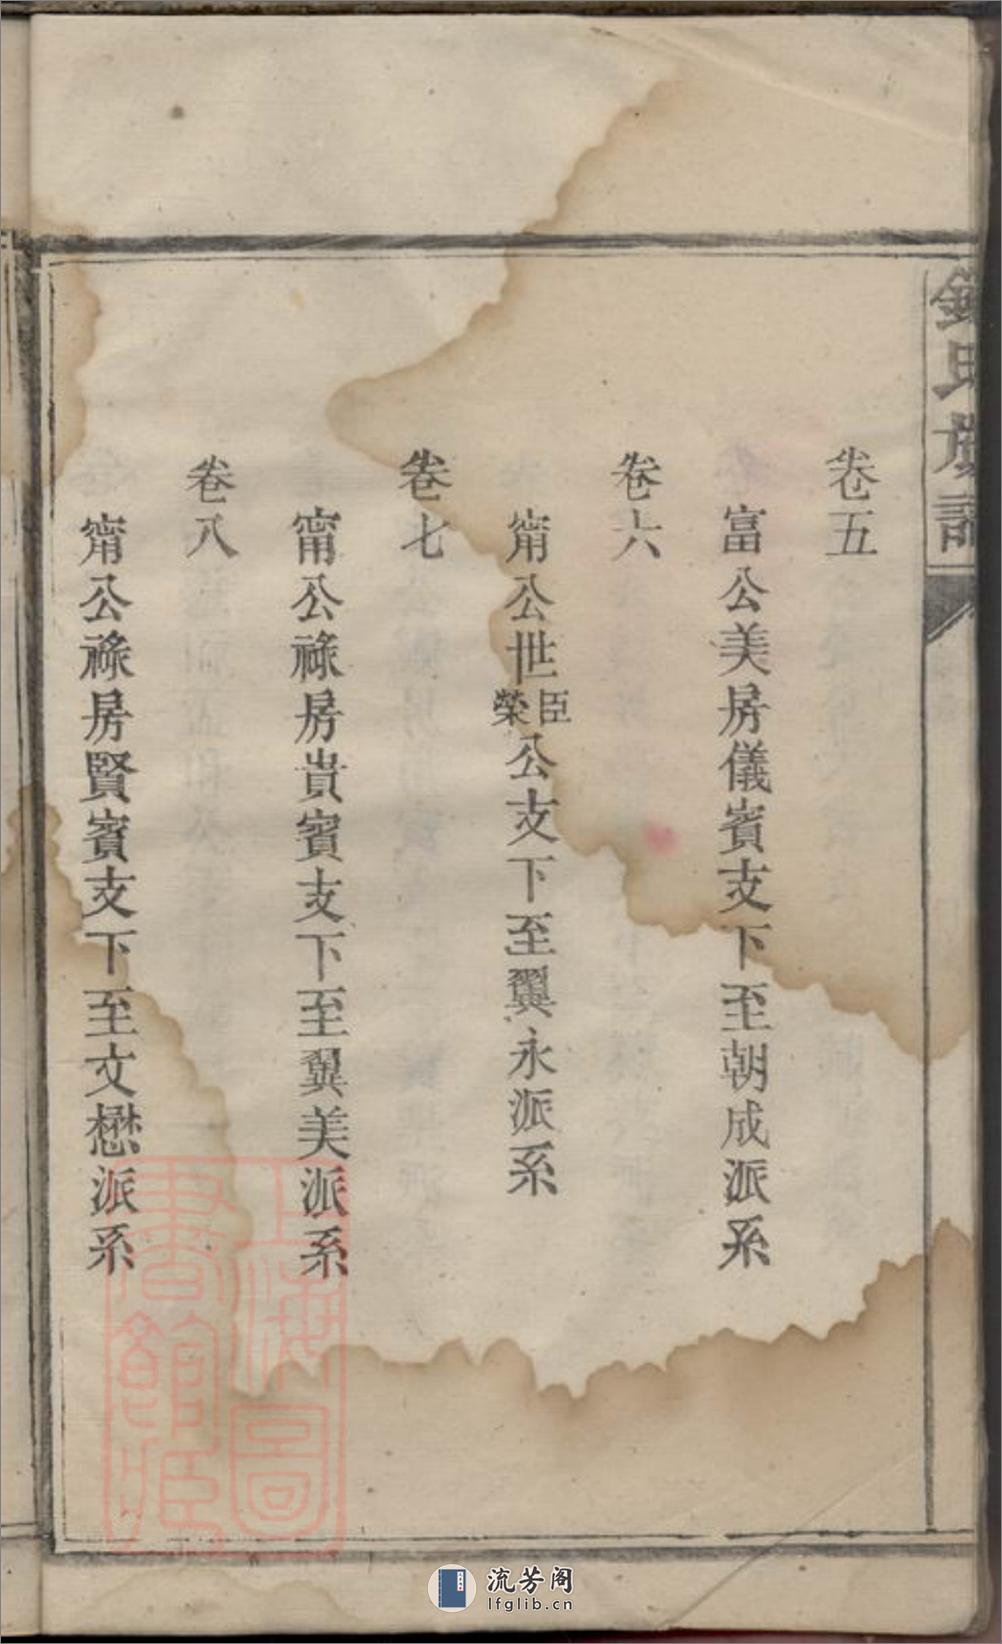 氏族譜
卷五
富公美房儀賓支下至朝成派系
卷六
甯公世臣榮公支下至翼永派系
卷七
甯公祿房貴賓支下至翼美派系
卷八
甯公祿房賢賓支下至文懋派系
上海圖
書館藏
流芳阁
lfglib.cn